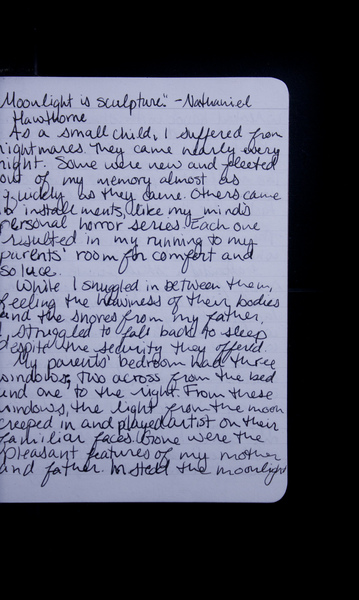 Moonlight is sculpture." -Nathaniel
Hawthorne
As a small child, I suffered from
nightmares. They came nearly every
night. Some were new and fleeted
out of my memory almost as
quickly as they came. Others came
in installments, like my mind's
personal horror series. Each one
resulted in my running to my
parents' room for comfort and
solace.
While I snuggled in between them,
feeling the heaviness of their bodies
and the snores from my father,
I struggled to fall back to sleep
despite the security they offered.
My parents' bedroom had three
windows, two across from the bed
and one to the right. From these
windows, the light from the moon
creeped in and played artist on their
familiar faces. Gone were the
pleasant features of my mother
and father. Instead the moonlight